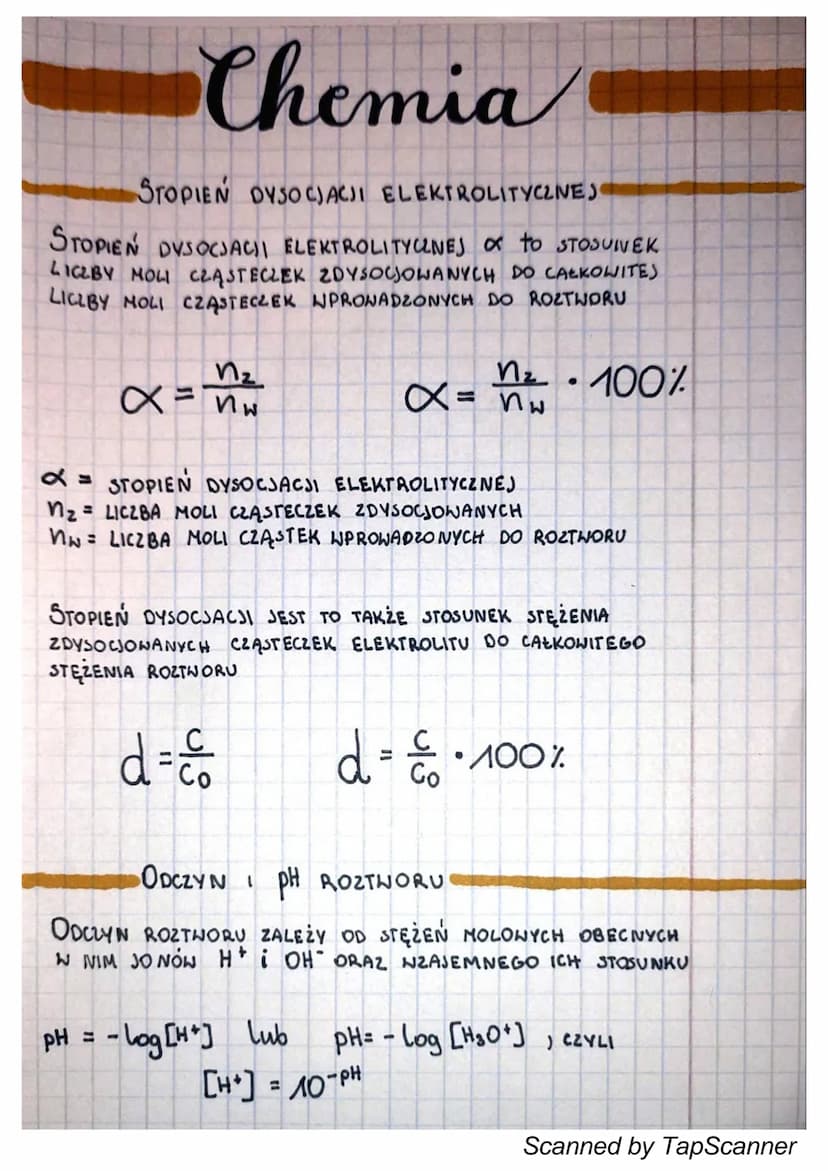 Chemia
STOPIEŃ DYSOCJACJI ELEKTROLITYCZNEJ
STOPIEŃ DYSOCJACJI ELEKTROLITYCZNEJ α to STOSUNEK
LICZBY MOLI CZĄSTECZEK ZDYSOCJOWANYCH DO CAŁKOWITEJ
LICZBY MOLI CZĄSTECZEK WPROWADZONYCH DO ROZTWORU
α = nz/nw    α = nz/nw · 100%
α = STOPIEŃ DYSOCJACJI ELEKTROLITYCZNEJ
nz = LICZBA MOLI CZĄSTECZEK ZDYSOCJOWANYCH
nw = LICZBA MOLI CZĄSTEK WPROWADZONYCH DO ROZTWORU
STOPIEŃ DYSOCJACJI JEST TO TAKŻE STOSUNEK STĘŻENIA
ZDYSOCJOWANYCH CZĄSTECZEK ELEKTROLITU DO CAŁKOWITEGO
STĘŻENIA ROZTWORU
d = c/c₀    d = c/c₀ · 100%
ODCZYN I pH ROZTWORU
ODCZYN ROZTWORU ZALEŻY OD STĘŻEŃ MOLOWYCH OBECNYCH
W NIM JONÓW H⁺ i OH⁻ ORAZ WZAJEMNEGO ICH STOSUNKU
pH = -log[H⁺] lub pH = -log [H₃O⁺] , CZYLI
[H⁺] = 10⁻ᵖᴴ
Scanned by TapScanner